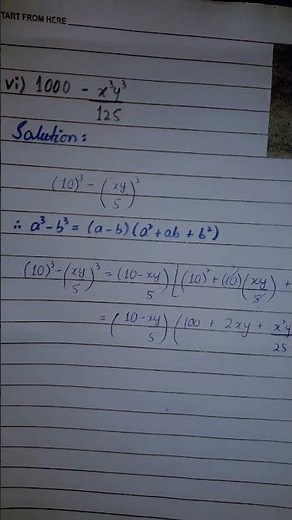 TART FROM HERE
vi) 1000 - x³y³/125
Solution:
(10)³ - (xy/5)³
∴ a³-b³ = (a-b)(a²+ab+b²)
(10)³-(xy/5)³ = (10-xy/5)[(10)²+(10)(xy/5)+
= (10-xy/5)(100 + 2xy + x²y/25